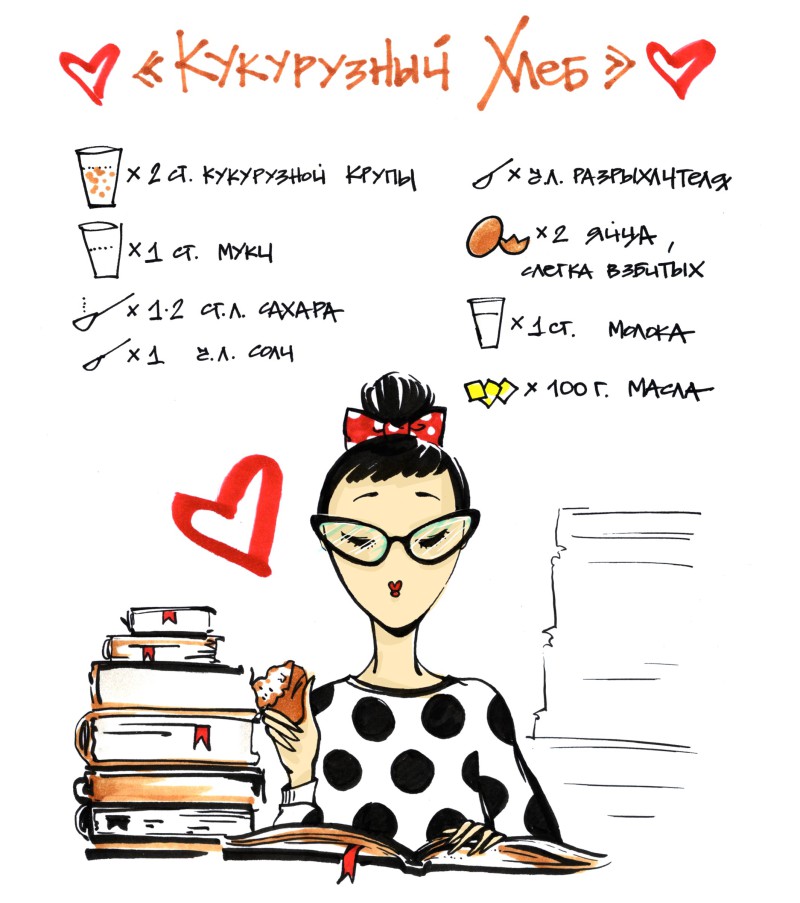 «Кукурузный Хлеб»
× 2 ст. кукурузной крупы
× 1 ст. муки
× 1-2 ст.л. сахара
× 1 ч.л. соли
× ч.л. разрыхлителя
× 2 яйца,
слегка взбитых
× 1 ст. молока
× 100 г. масла